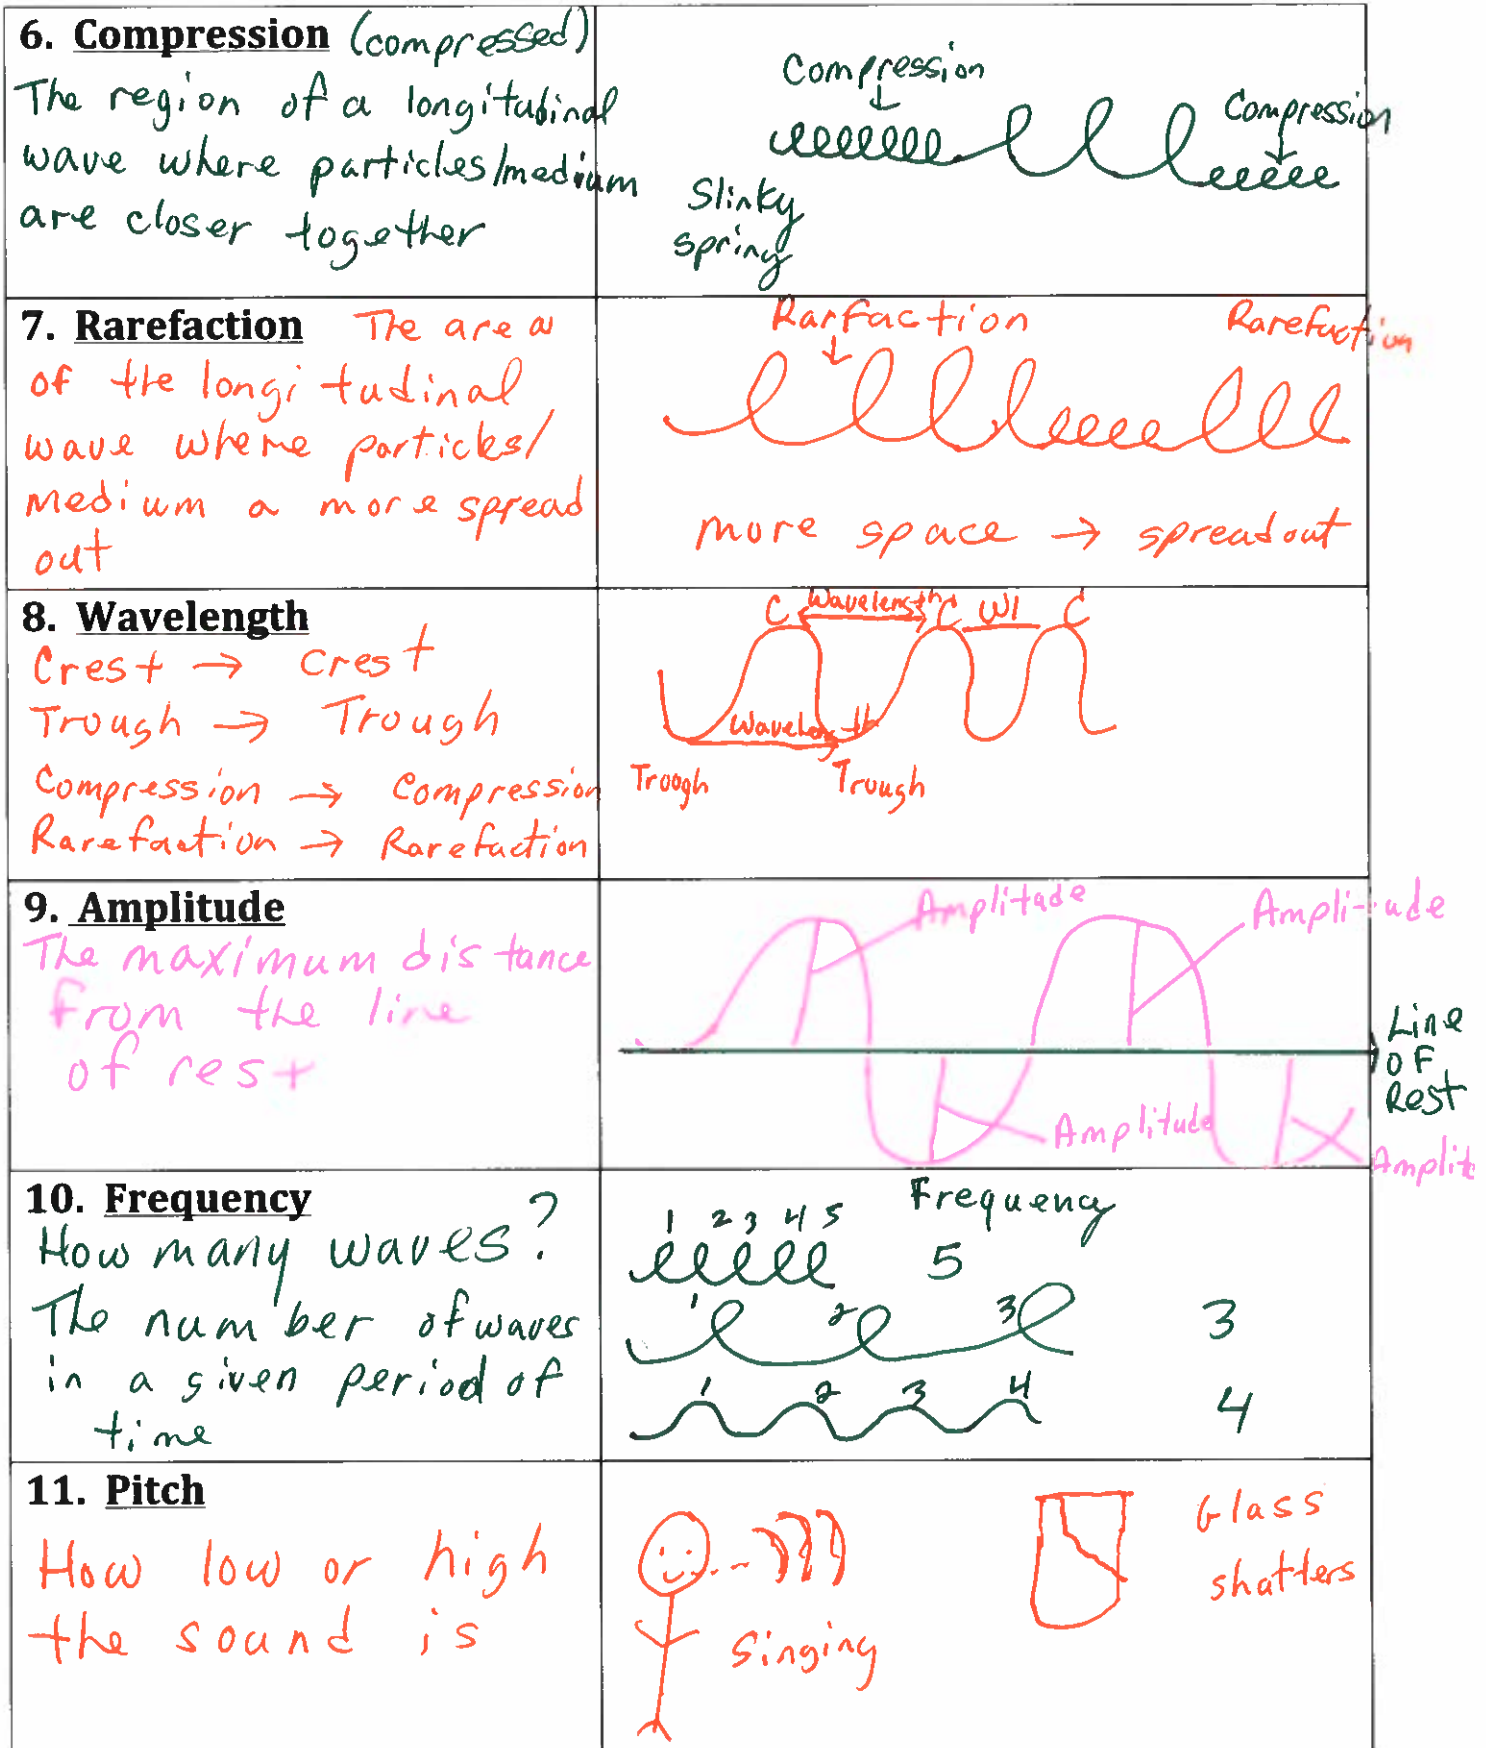 6. Compression (compressed)
The region of a longitudinal
wave where particles/medium
are closer together
Compression
Compression
Slinky
spring
7. Rarefaction The area
of the longitudinal
wave where particles/
medium a more spread
out
Rarfaction
Rarefaction
more space → spreadout
8. Wavelength
Crest → Crest
Trough → Trough
Compression → Compression
Rarefaction → Rarefaction
C Wavelength C Wl C
Wavelength
Trough Trough
9. Amplitude
The maximum distance
from the line
of rest
Amplitude
Amplitude
Line
of
Rest
Amplitude
Amplit
10. Frequency
How many waves?
The number of waves
in a given period of
time
Frequency
1 2 3 4 5
5
1 2 3
3
1 2 3 4
4
11. Pitch
How low or high
the sound is
Singing
Glass
shatters